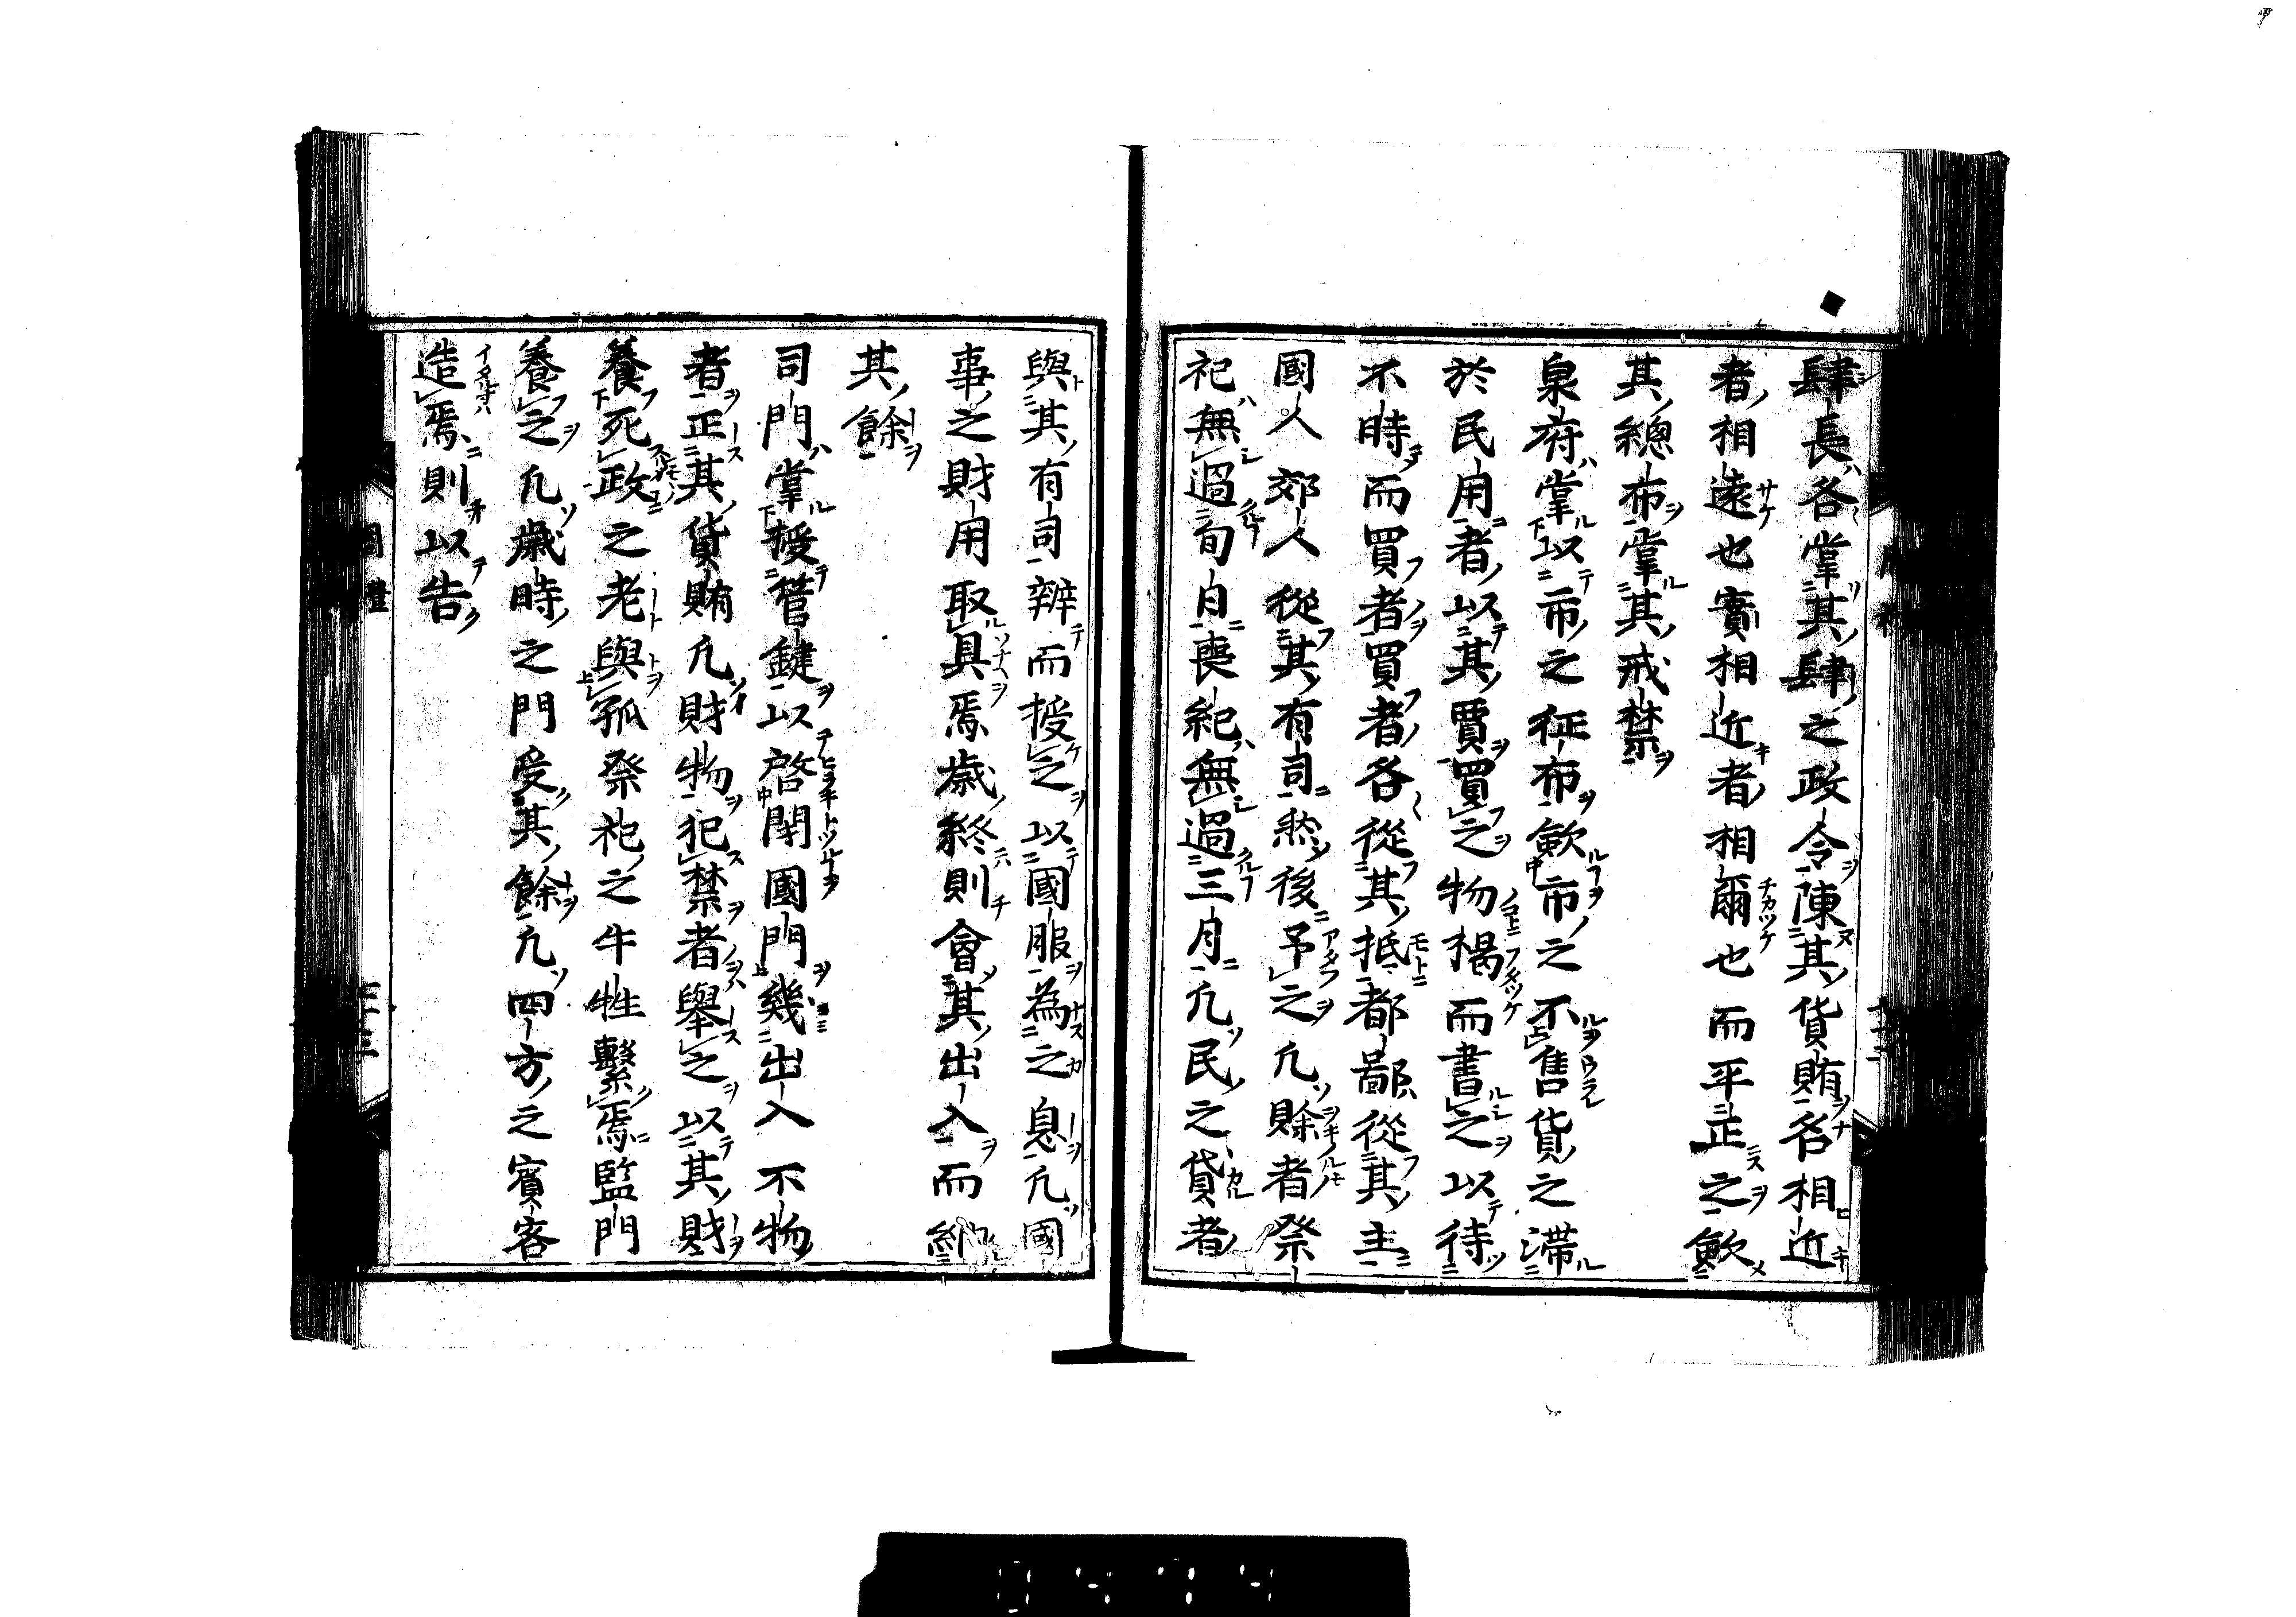 肆長各掌其肆之政令陳其貨賄名相近
者相遠也實相近者相爾也而平正之歛
其總布掌其戒禁
泉府掌以市之征布歛市之不售貨之滯
於民用者以其賈買之物楬而書之以待
不時而買者買者各從其抵都鄙從其主
國人郊人從其有司然後予之凢賒者祭
祀無過旬日喪紀無過三月凢民之貸者
與其有司辨而授之以國服為之息凢國
事之財用取具焉歲終則會其出入而納
其餘
司門掌授管鍵以啓閉國門幾出入不物
者正其貨賄凢財物犯禁者舉之以其財
養死政之老與孤祭祀之牛牲繫焉監門
養之凢歲時之門受其餘凢四方之賓客
造焉則以告